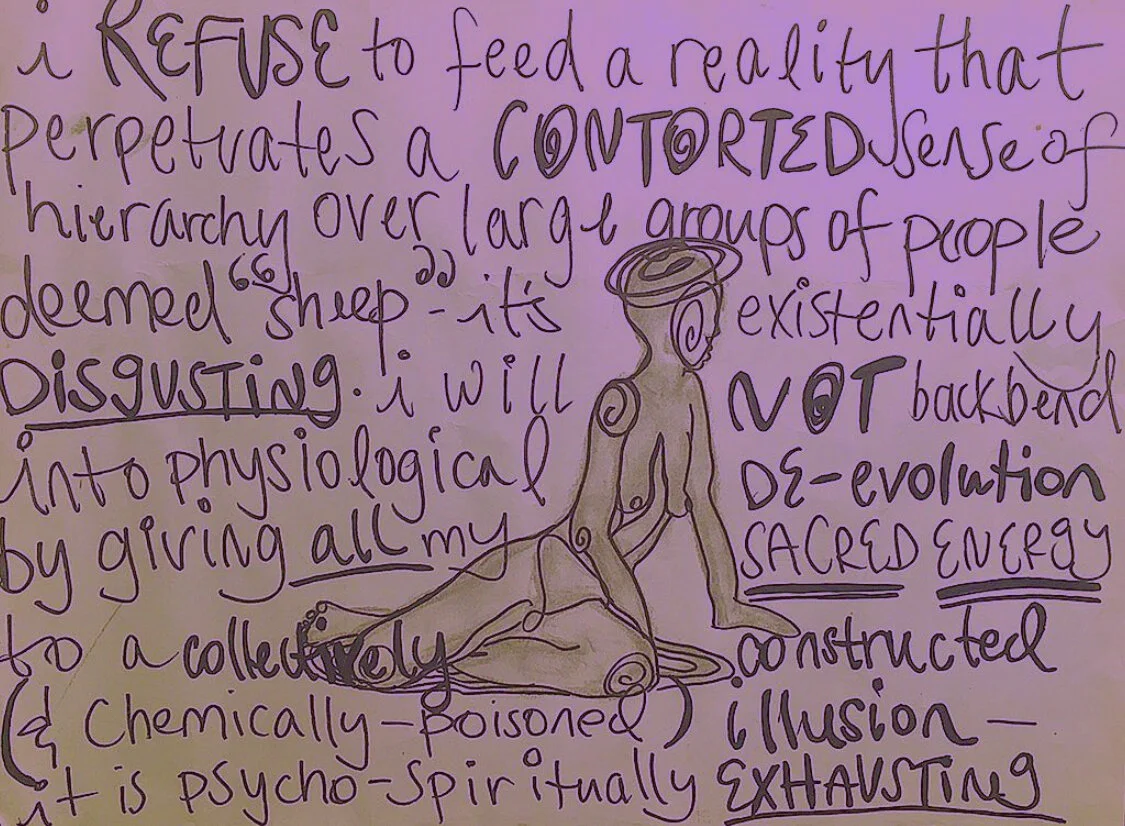 i REFUSE to feed a reality that
perpetuates a CONTORTED sense of
hierarchy over large groups of people
deemed "sheep" - it's existentially
DISGUSTING. i will NOT backbend
into physiological DE-evolution
by giving all my SACRED ENERGY
to a collectively constructed
(& chemically-poisoned) illusion —
it is psycho-spiritually EXHAUSTING